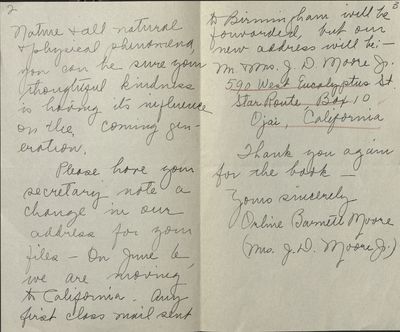 2
Nature & all natural
& physical phenomena,
you can be sure your
thoughtful kindness
is having its influence
on the, coming gen-
eration.
Please have your
secretary note a
change in our
address for your
files - On June 6,
we are moving
to California. Any
first class mail sent
3
to Birmingham will be
forwarded, but our
new address will be: -
Mr. Mrs. J. D. Moore Jr.
590 West Eucalyptus St.
Star Route - Box 10
Ojai, California
Thank you again
for the book -
Yours sincerely
Barnett Moore
(Mrs. J. D. Moore Jr.)